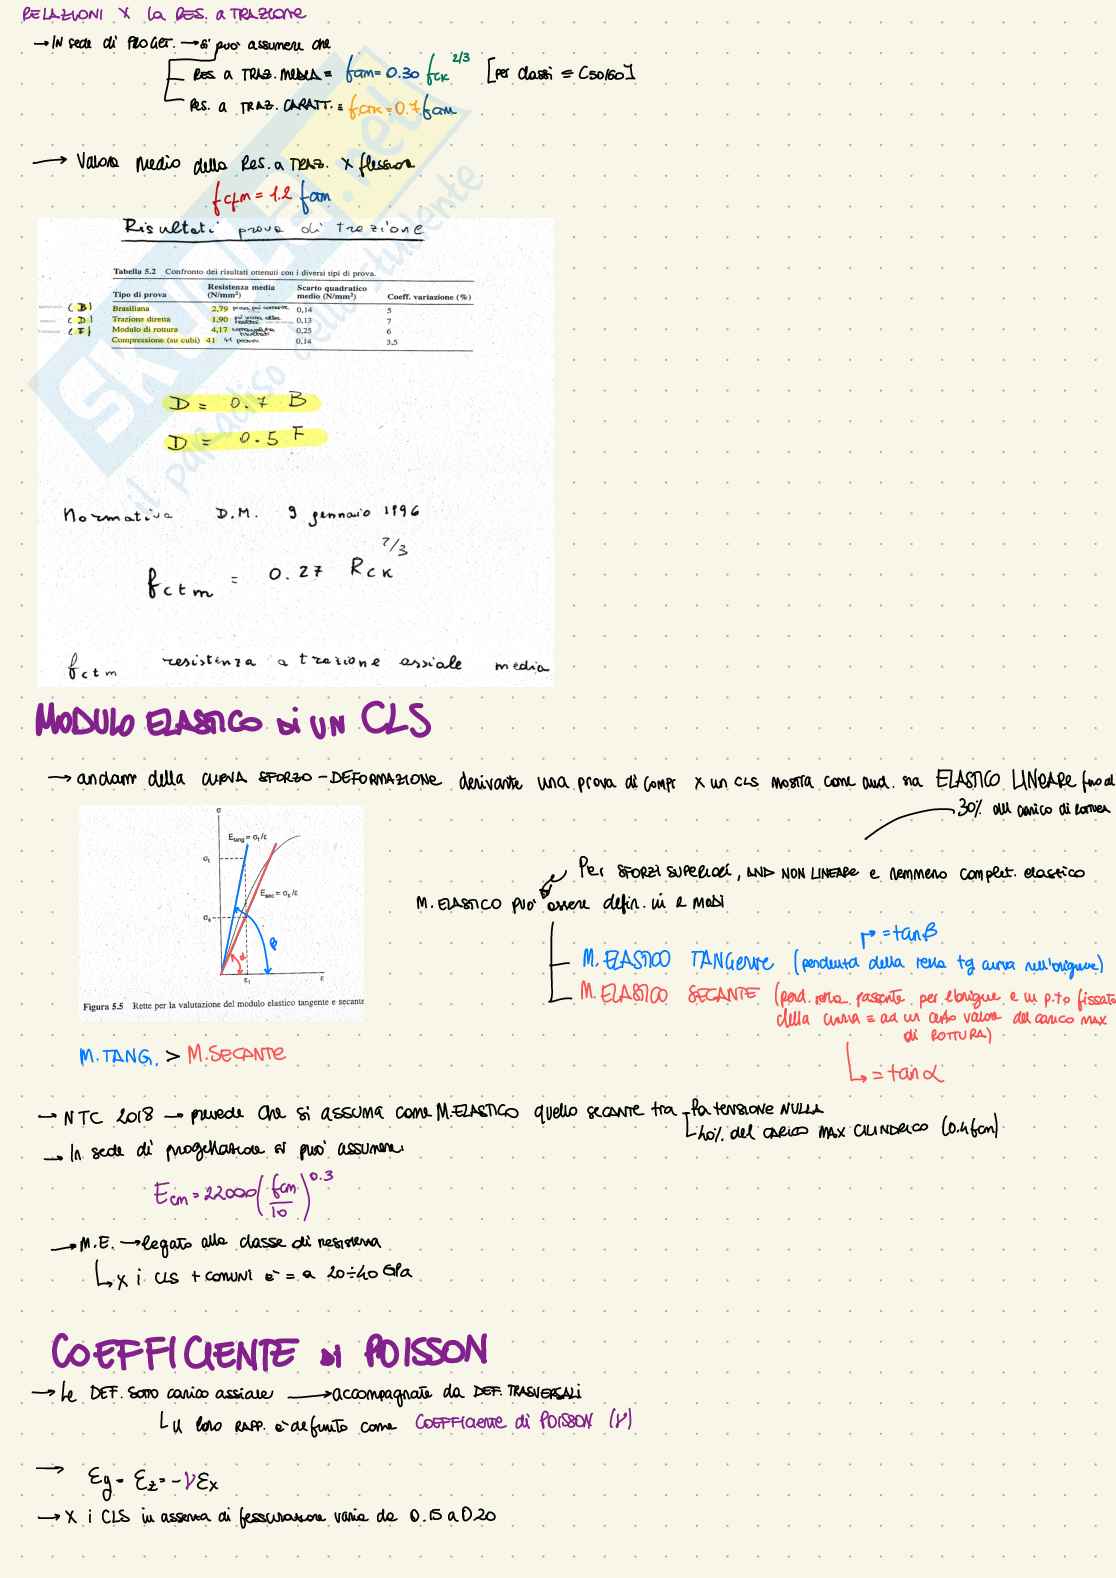 RELAZIONI X la RES. a TRAZIONE
→ IN sede di PROGET. → si può assumere che
RES. a TRAZ. MEDIA = fctm = 0.30 fck^2/3 [per classi ≤ C50/60]
RES. a TRAZ. CARATT. = fctk = 0.7 fctm
→ Valore medio della Res. a TRAZ. X flessione
fcfm = 1.2 fctm
Risultati prova di trazione
Tabella 5.2 Confronto dei risultati ottenuti con i diversi tipi di prova.
Tipo di prova Resistenza media (N/mm²) Scarto quadratico medio (N/mm²) Coeff. variazione (%)
(B) Brasiliana 2,79 0,14 5
(D) Trazione diretta 1,90 0,13 7
(F) Modulo di rottura 4,17 0,25 6
Compressione (su cubi) 41 0,14 3,5
D = 0.7 B
D = 0.5 F
Normativa D.M. 9 gennaio 1996
fctm = 0.27 Rck^2/3
fctm resistenza a trazione assiale media
MODULO ELASTICO di UN CLS
→ andam della CURVA SFORZO-DEFORMAZIONE derivante una prova di compr X un CLS mostra come and. sia ELASTICO LINEARE fino al
30% del carico di rottura
σ
E_tang = σt/ε
σt
E_sec = σs/ε
σs
β
α
ε1
ε
Per SFORZI SUPERIORI, AND NON LINEARE e nemmeno complet. elastico
M. ELASTICO PUÒ essere defin. in 2 MODI
= tanβ
M. ELASTICO TANGENTE (pendenza della retta tg curva nell'origine)
M. ELASTICO SECANTE (pend. retta passante per l'origine e un p.to fissato
della curva = ad un certo valore del carico max
di ROTTURA)
Figura 5.5 Rette per la valutazione del modulo elastico tangente e secante
M. TANG. > M. SECANTE
= tanα
→ NTC 2018 → prevede che si assuma come M. ELASTICO quello secante tra la TENSIONE NULLA
40% del CARICO MAX CILINDRICO (0.4fcm)
→ In sede di progettazione si può assumere
Ecm = 22000(fcm/10)^0.3
→ M.E. → legato alla classe di resistenza
X i CLS + comuni è = a 20÷40 GPa
COEFFICIENTE di POISSON
→ Le DEF. sotto carico assiale → accompagnate da DEF. TRASVERSALI
Il loro RAPP. è definito come COEFFICIENTE di POISSON (ν)
→ εy = εz = -νεx
→ X i CLS in assenza di fessurazione varia da 0.15 a 0.20
SKUOLA.net
il paradiso dello studente